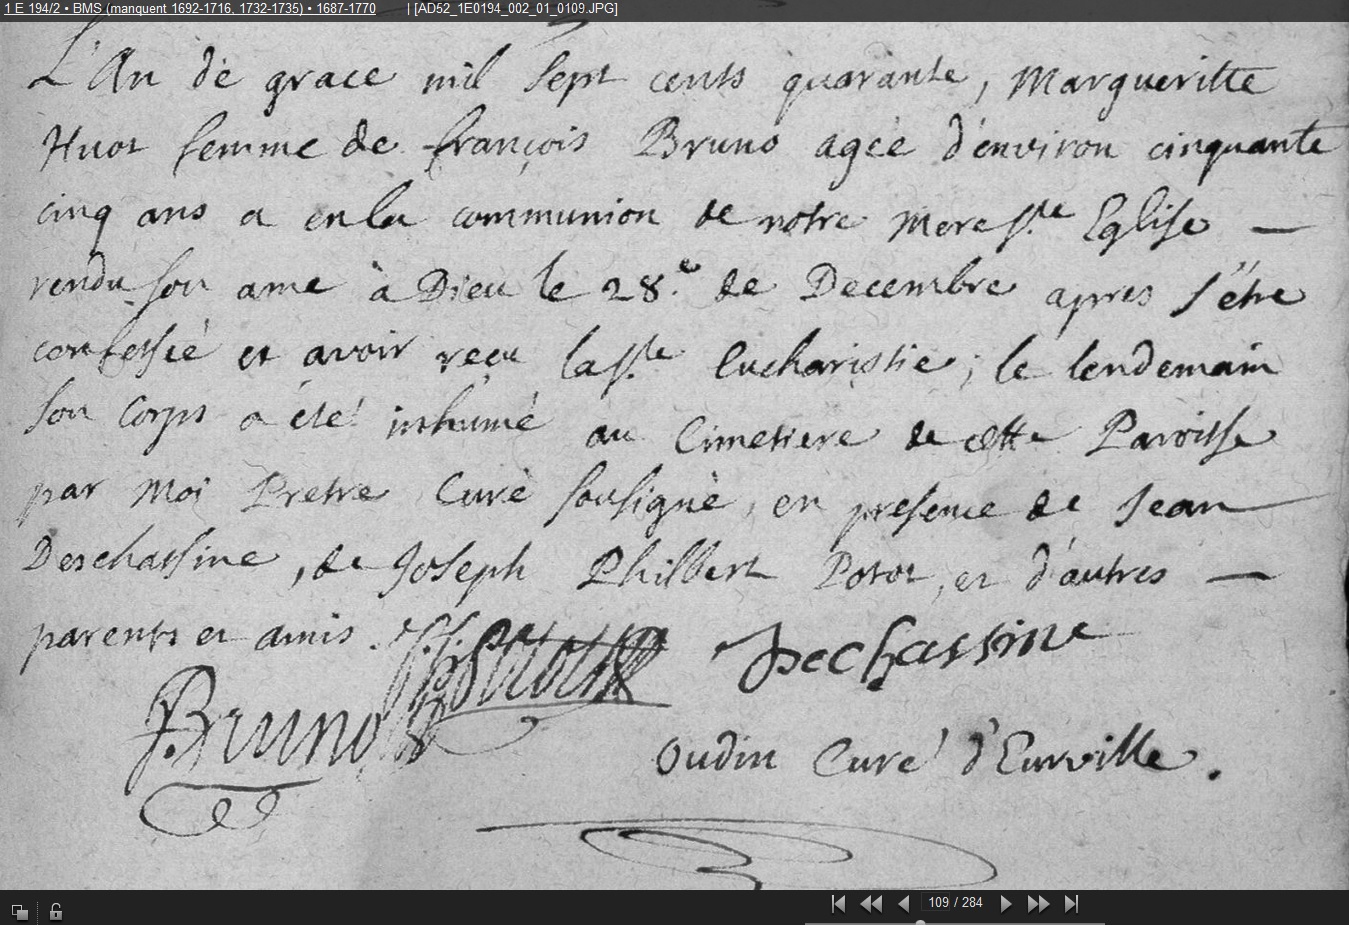 1 E 194/2 • BMS (manquent 1692-1716, 1732-1735) • 1687-1770 | [AD52_1E0194_002_01_0109.JPG]
L'An de grace mil sept cents quarante, Margueritte
Huot femme de françois Bruno agée d'environ cinquante
cinq ans a en la communion de notre Mere Ste Eglise —
rendu son ame à Dieu le 28.e de Decembre apres s'étre
confessée et avoir reçu la Ste Eucharistie; le lendemain
son Corps a été inhumé au Cimetiere de cette Paroisse
par Moi Pretre Curé sousigné, en presence de Jean
Deschassine, de Joseph Philbert Potot, et d'autres —
parents et amis.
Dechassine
f. Bruno
Oudin Curé d'Eurville.
109 / 284